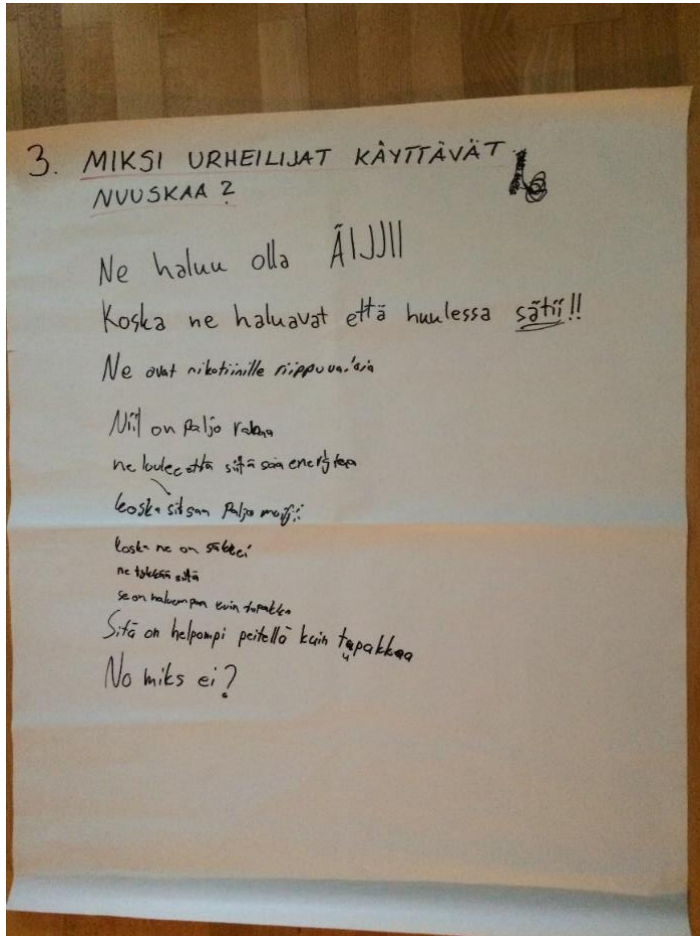 3. MIKSI URHEILIJAT KÄYTTÄVÄT
NUUSKAA?
Ne haluu olla ÄIJJII
Koska ne haluavat että huulessa sätii!!
Ne ovat nikotiinille riippuvaisia
Niil on paljo rahaa
ne luulee että siitä saa energiaa
koska sit saa paljo
koska ne on
ne tykkää siitä
se on halvempaa kuin tupakka
Sitä on helpompi peitellä kuin tupakkaa
No miks ei?